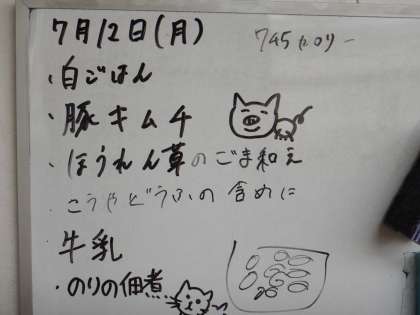 7月12日(月) 745キロカロリー
・白ごはん
・豚キムチ
・ほうれん草のごま和え
こうやどうふの含めに
牛乳
・のりの佃煮